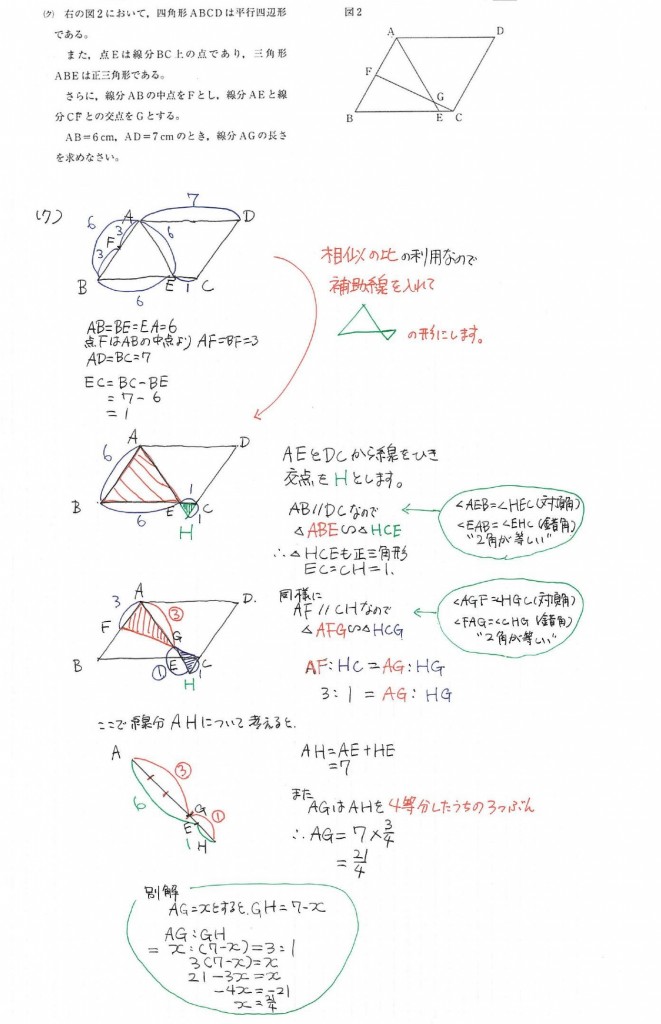 (ク) 右の図2において，四角形ABCDは平行四辺形
である。
また，点Eは線分BC上の点であり，三角形
ABEは正三角形である。
さらに，線分ABの中点をFとし，線分AEと線
分CFとの交点をGとする。
AB=6cm，AD=7cmのとき，線分AGの長さ
を求めなさい。
図2
A
D
F
G
B
E
C
(ク)
7
6
A
D
3
F
6
3
B
E
1
C
6
相似の比の利用なので
補助線を入れて
の形にします。
AB=BE=EA=6
点FはABの中点より AF=BF=3
AD=BC=7
EC=BC-BE
=7-6
=1
A
D
6
1
B
E
C
6
H
1
AEとDCから線をひき
交点をHとします。
AB//DCなので
△ABE∽△HCE
∴△HCEも正三角形
EC=CH=1.
∠AEB=∠HEC(対頂角)
∠EAB=∠EHC(錯角)
"2角が等しい"
A
D.
3
③
F
G
B
E
C
①
1
H
同様に
AF//CHなので
△AFG∽△HCG
AF:HC=AG:HG
3:1=AG:HG
∠AGF=∠HGC(対頂角)
∠FAG=∠CHG(錯角)
"2角が等しい"
ここで線分AHについて考えると、
A
③
6
G
①
E
1
H
AH=AE+HE
=7
また
AGはAHを4等分したうちの3つぶん
∴AG=7×3/4
=21/4
別解
AG=xとすると、GH=7-x
AG:GH
=x:(7-x)=3:1
3(7-x)=x
21-3x=x
-4x=-21
x=21/4